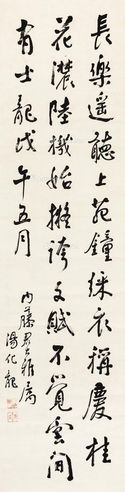 長樂遙聽上苑鐘綵衣稱慶桂
花濃陸機始擬誇文賦不覺雲間
有士龍戊午五月
內藤君雅屬
湯化龍